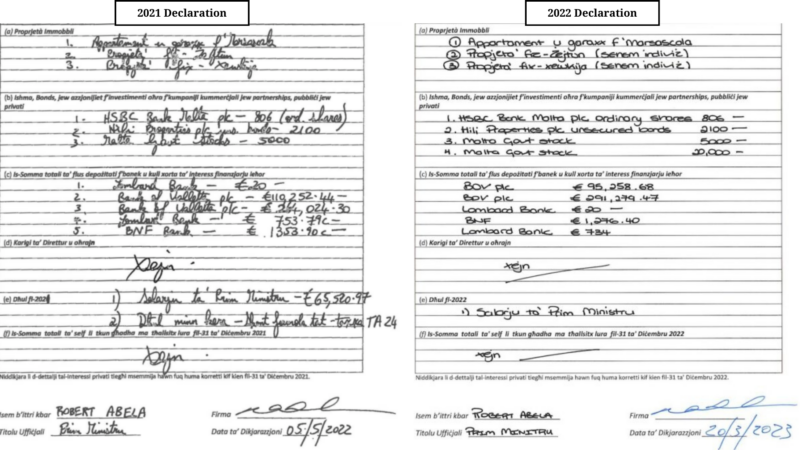 2021 Declaration
(a) Proprjetà Immobbli
1. Appartament u garaxx f'Marsascala
2. Proprjeta' fiz-Zejtun
3. Proprjeta' fix-Xewkija
(b) Ishma, Bonds, jew azzjonijiet f'investimenti oħra f'kumpaniji kummerċjali jew partnerships, pubbliċi jew
privati
1. HSBC Bank Malta plc – 806 (ord. shares)
2. Hili Properties plc uns. bonds – 2100
3. Malta Govt stocks – 5000
(c) Is-Somma totali ta' flus depożitati f'banek u kull xorta ta' interess finanzjarju ieħor
1. Lombard Bank – €20 –
2. Bank of Valletta plc – €119,252.44 –
3. Bank of Valletta plc – €264,024.30
4. Lombard Bank – € 753.79c –
5. BNF Bank – € 1353.90c –
(d) Karigi ta' Direttur u oħrajn
Xejn
(e) Dħul fl-2021
1) Salarju ta' Prim Ministru – €65,520.97
2) Dħul minn kera – TA 24
(f) Is-Somma totali ta' self li tkun għadha ma tħallsitx lura fil-31 ta' Diċembru 2021
Xejn
Niddikjara li d-dettalji tal-interessi privati tiegħi msemmija hawn fuq huma korretti kif kien fil-31 ta' Diċembru 2021.
Isem b'ittri kbar ROBERT ABELA Firma
Titolu Uffiċjali Prim Ministru Data ta' Dikjarazzjoni 05/5/2022
2022 Declaration
(a) Proprjetà Immobbli
① Appartament u garaxx f'Marsascala
② Propjeta' fiz-Zejtun (sehem indiviz)
③ Propjeta' fix-xewkija (sehem indiviz)
(b) Ishma, Bonds, jew azzjonijiet f'investimenti oħra f'kumpaniji kummerċjali jew partnerships, pubbliċi jew
privati
1. HSBC Bank Malta plc ordinary shares 806 –
2. Hili Properties plc unsecured bonds 2100 –
3. Malta Govt stock 5000 –
4. Malta Govt stock 20,000 –
(c) Is-Somma totali ta' flus depożitati f'banek u kull xorta ta' interess finanzjarju ieħor
BOV plc € 95,258.68
BOV plc € 291,279.47
Lombard Bank € 20 –
BNF € 1,276.40
Lombard Bank € 734
(d) Karigi ta' Direttur u oħrajn
xejn
(e) Dħul fl-2022
1) Salarju ta' Prim Ministru
(f) Is-Somma totali ta' self li tkun għadha ma tħallsitx lura fil-31 ta' Diċembru 2022
xejn
Niddikjara li d-dettalji tal-interessi privati tiegħi msemmija hawn fuq huma korretti kif kien fil-31 ta' Diċembru 2022.
Isem b'ittri kbar ROBERT ABELA Firma
Titolu Uffiċjali PRIM MINISTRU Data ta' Dikjarazzjoni 20/3/2023